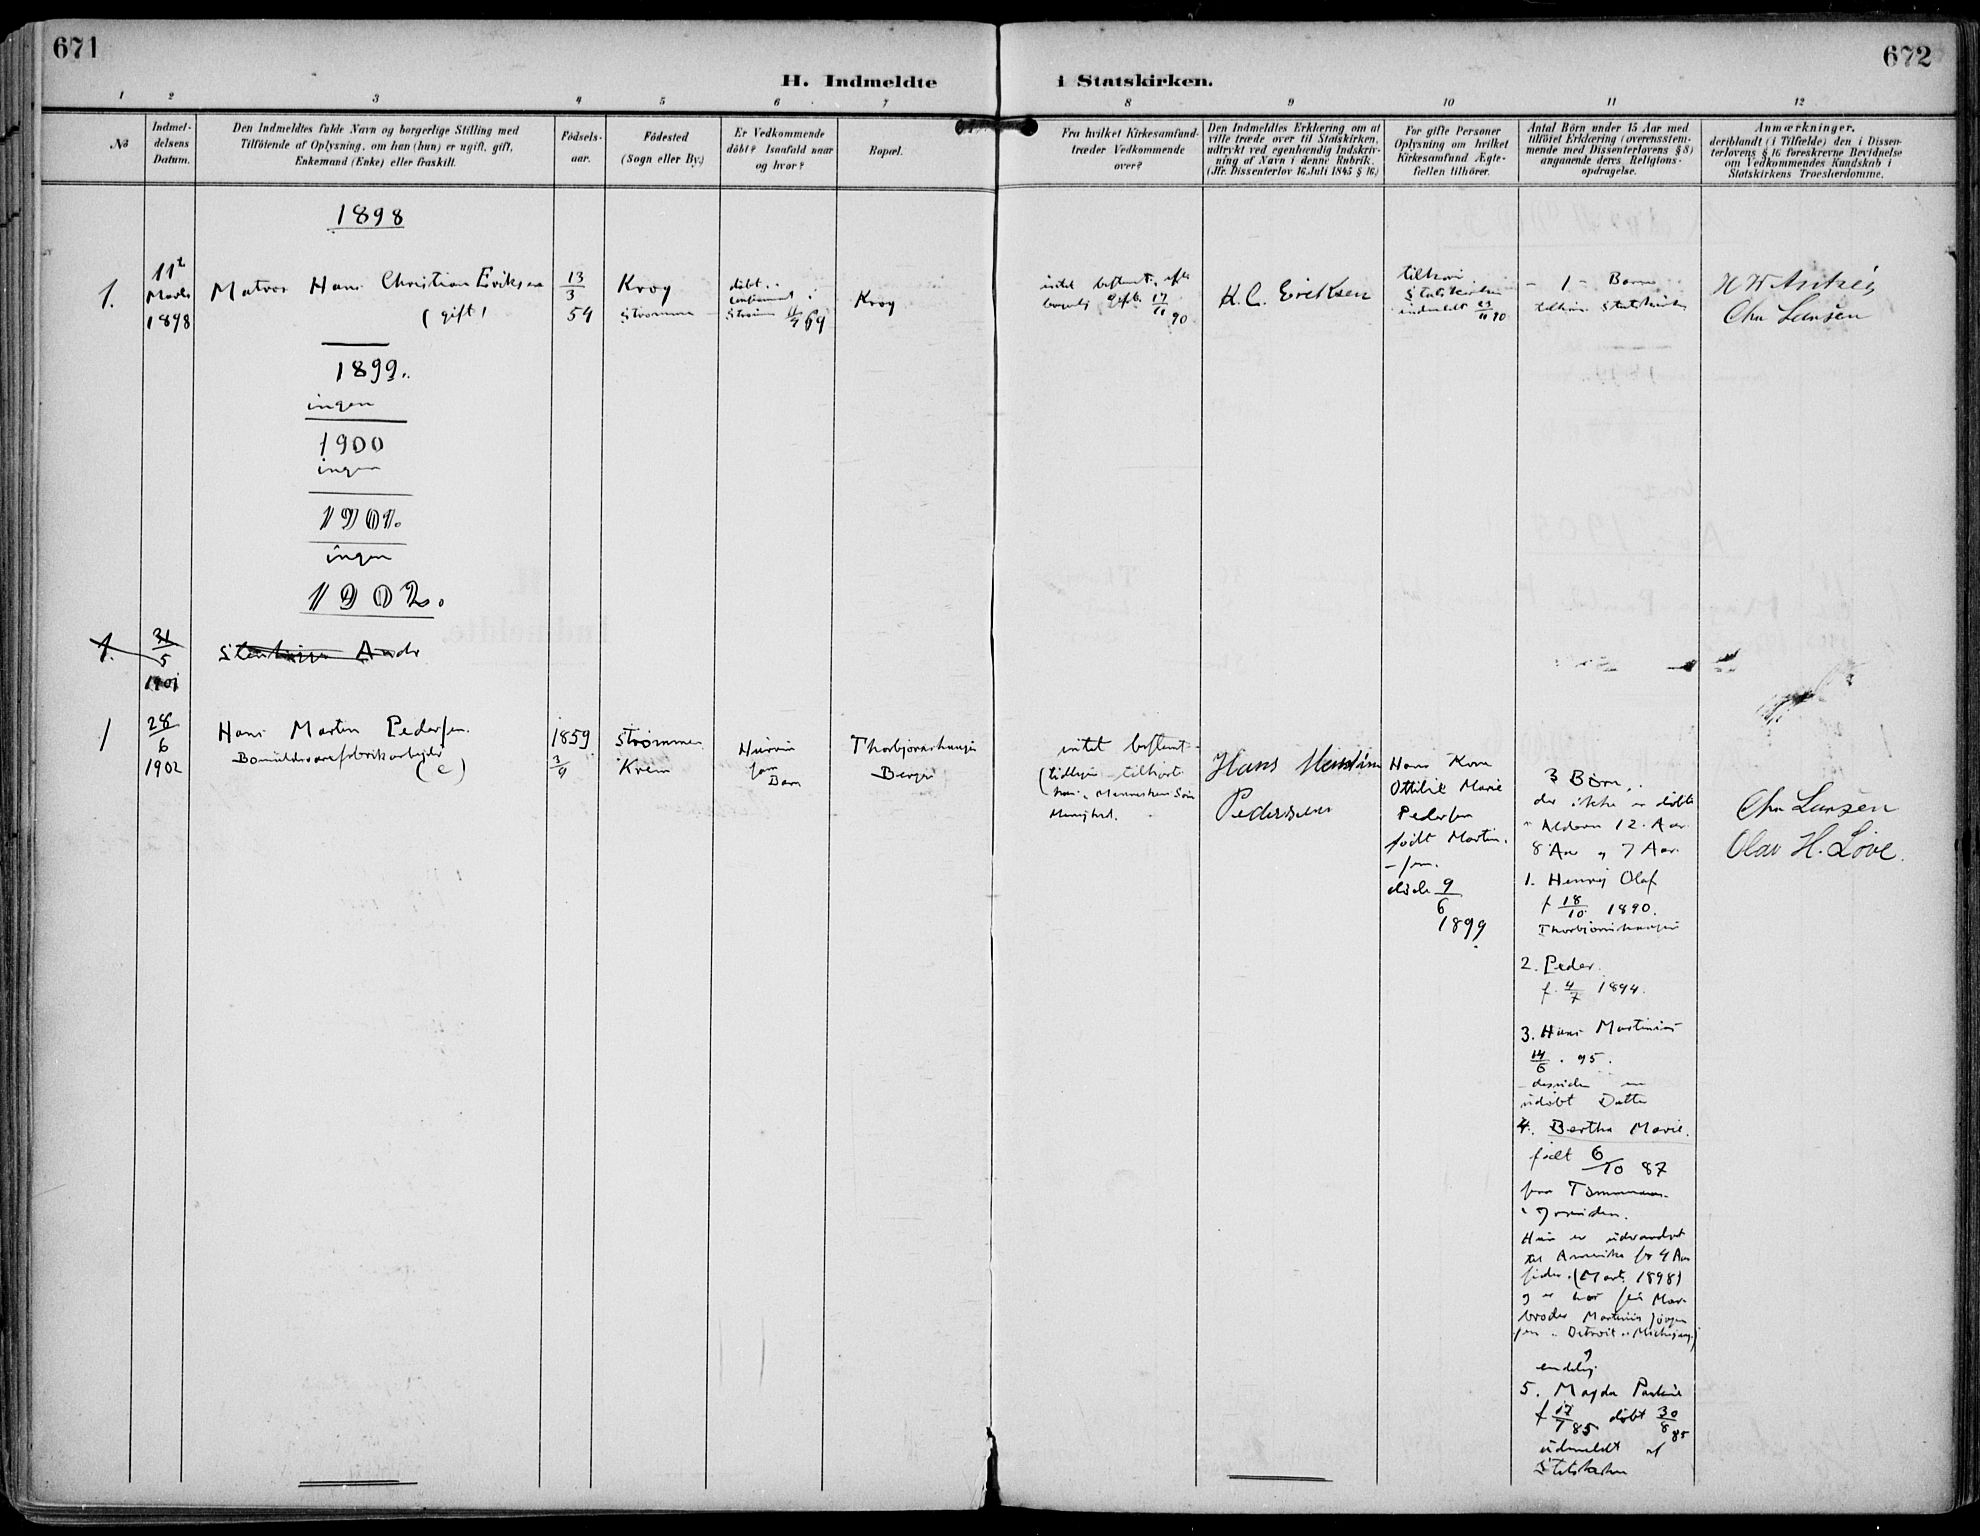 671
672
H. Indmeldte i Statskirken.
1 2 3 4 5 6 7 8 9 10 11 12
No
Indmel-
delsens
Datum.
Den Indmeldtes fulde Navn og borgerlige Stilling med
Tilföiende af Oplysning, om han (hun) er ugift, gift,
Enkemand (Enke) eller fraskilt.
Födsels-
aar.
Födested
(Sogn eller By.)
Er Vedkommende
döbt? Isaafald naar
og hvor?
Bopæl.
Fra hvilket Kirkesamfund
træder Vedkommende
over?
Den Indmeldtes Erklæring om at
ville træde over til Statskirken,
udtrykt ved egenhændig Indskriv-
ning af Navn i denne Rubrik.
(Jfr. Dissenterlov 16 Juli 1845 § 16.)
For gifte Personer
Oplysning om hvilket
Kirkesamfund Ægte-
fællen tilhörer.
Antal Börn under 15 Aar med
tilföiet Erklæring (overensstem-
mende med Dissenterlovens § 8)
angaaende deres Religions-
opdragelse.
Anmærkninger,
deriblandt (i Tilfælde) den i Dissen-
terlovens § 16 foreskrevne Bevidnelse
om Vedkommendes Kundskab i
Statskirkens Troesherdomme.
1898
1.
11te
Marts
1898
Matros Hans Christian Eriksen
(gift)
13/3
54
Krog
Strømmen
døbt
Krog
intet bestemt, efter
borgerlig Gift. 17/11 90
H. C. Eriksen
tilhører
Statskirken
indmeldt
1 Barn
tilhører Statskirken
Chr Larsen
1899.
ingen
1900
ingen
1901.
ingen
1902.
1.
31/5
1901
1
28/6
1902
Hans Martin Pedersen.
Bomuldsvarefabrikarbejder
(e)
1859
3/9
Strømmen
Hurum
som
Barn
Thorbjørnshaugen
Berger
intet bestemt
(tidligere tilhørt
Menighed.
Hans
Pederssen
Hans Kone
Ottilie Marie
Pedersen
født Martin-
-sen.
døde 9/6
1899
3 Børn,
der ikke er døbte
Alderen 12 Aar
8 Aar og 7 Aar
1. Henrij Olaf
f 18/10 1890.
Thorbjørnshaugen
2. Peder.
f. 4/7 1894.
3. Hans Martinius
14/6 . 95.
desuden en
udøbt Datter
4. Bertha Marie.
født 6/10 87
Hun er udvandret
til Amerika for 4 Aar
siden. (Marts 1898)
og er hos sin Mor-
broder Martinius Jørgen
sen i Detroit i Michigan)
endelig
5. Magda
f 17/7 85 døbt 30/8 85
udmeldt af
Statskirken
Chr Larsen
Olav H. Løve.